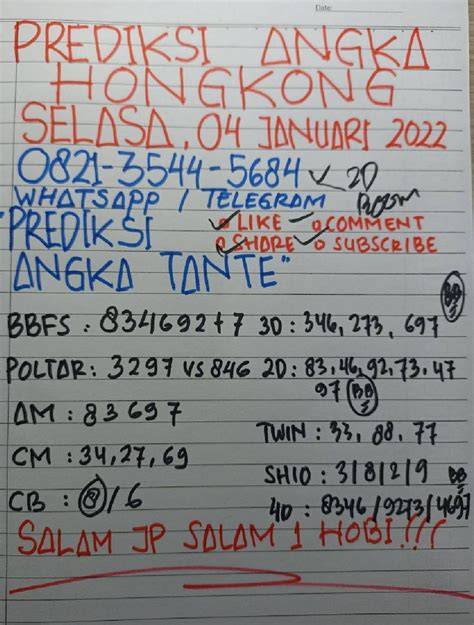 Date:
PREDIKSI ANGKA
HONGKONG
SELASA, 04 JANUARI 2022
0821-3544-5684 ✓ 2D
WHATSAPP / TELEGRAM
LIKE COMMENT
"PREDIKSI SHARE SUBSCRIBE
ANGKA TANTE"
BB
BBFS : 8341692+7 3D : 346, 273, 697
POLTAR : 3297 VS 846 2D : 83, 46, 92, 73, 47
97 BB
AM : 83697
TWIN : 33, 88, 77
CM : 34, 27, 69
SHIO : 3/8/2/9 BB
CB : 8/6
4D : 8346/9273/4697
SALAM JP SALAM 1 HOBI!!!